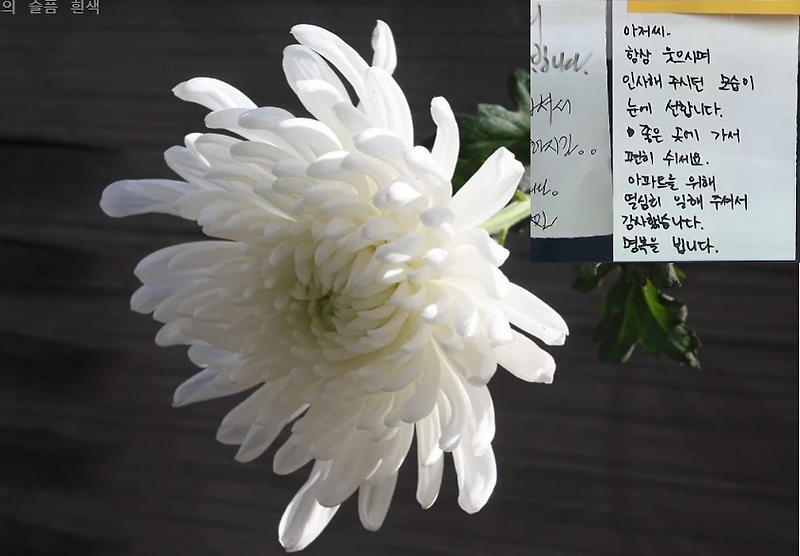 의 슬픔 흰색
아저씨.
항상 웃으시며
인사해 주시던 모습이
눈에 선합니다.
좋은 곳에 가서
편히 쉬세요.
아파트를 위해
열심히 일해 주셔서
감사했습니다.
명복을 빕니다.